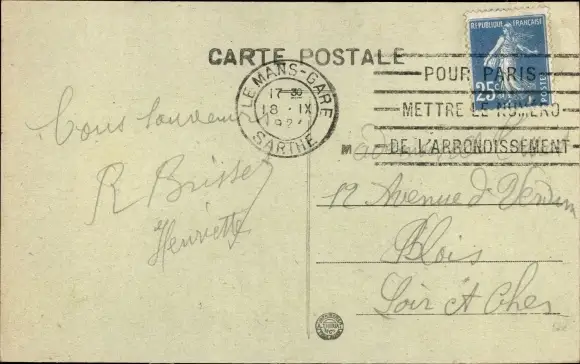 CARTE POSTALE
REPUBLIQUE FRANÇAISE
25c
POSTES
LE MANS-GARE
17 30
18 - IX
192
SARTHE
POUR PARIS
METTRE LE NUMERO
DE L'ARRONDISSEMENT
Bons souvenirs
R Brisset
Henriette
M
12 Avenue d Verdun
Blois
Loir et Cher